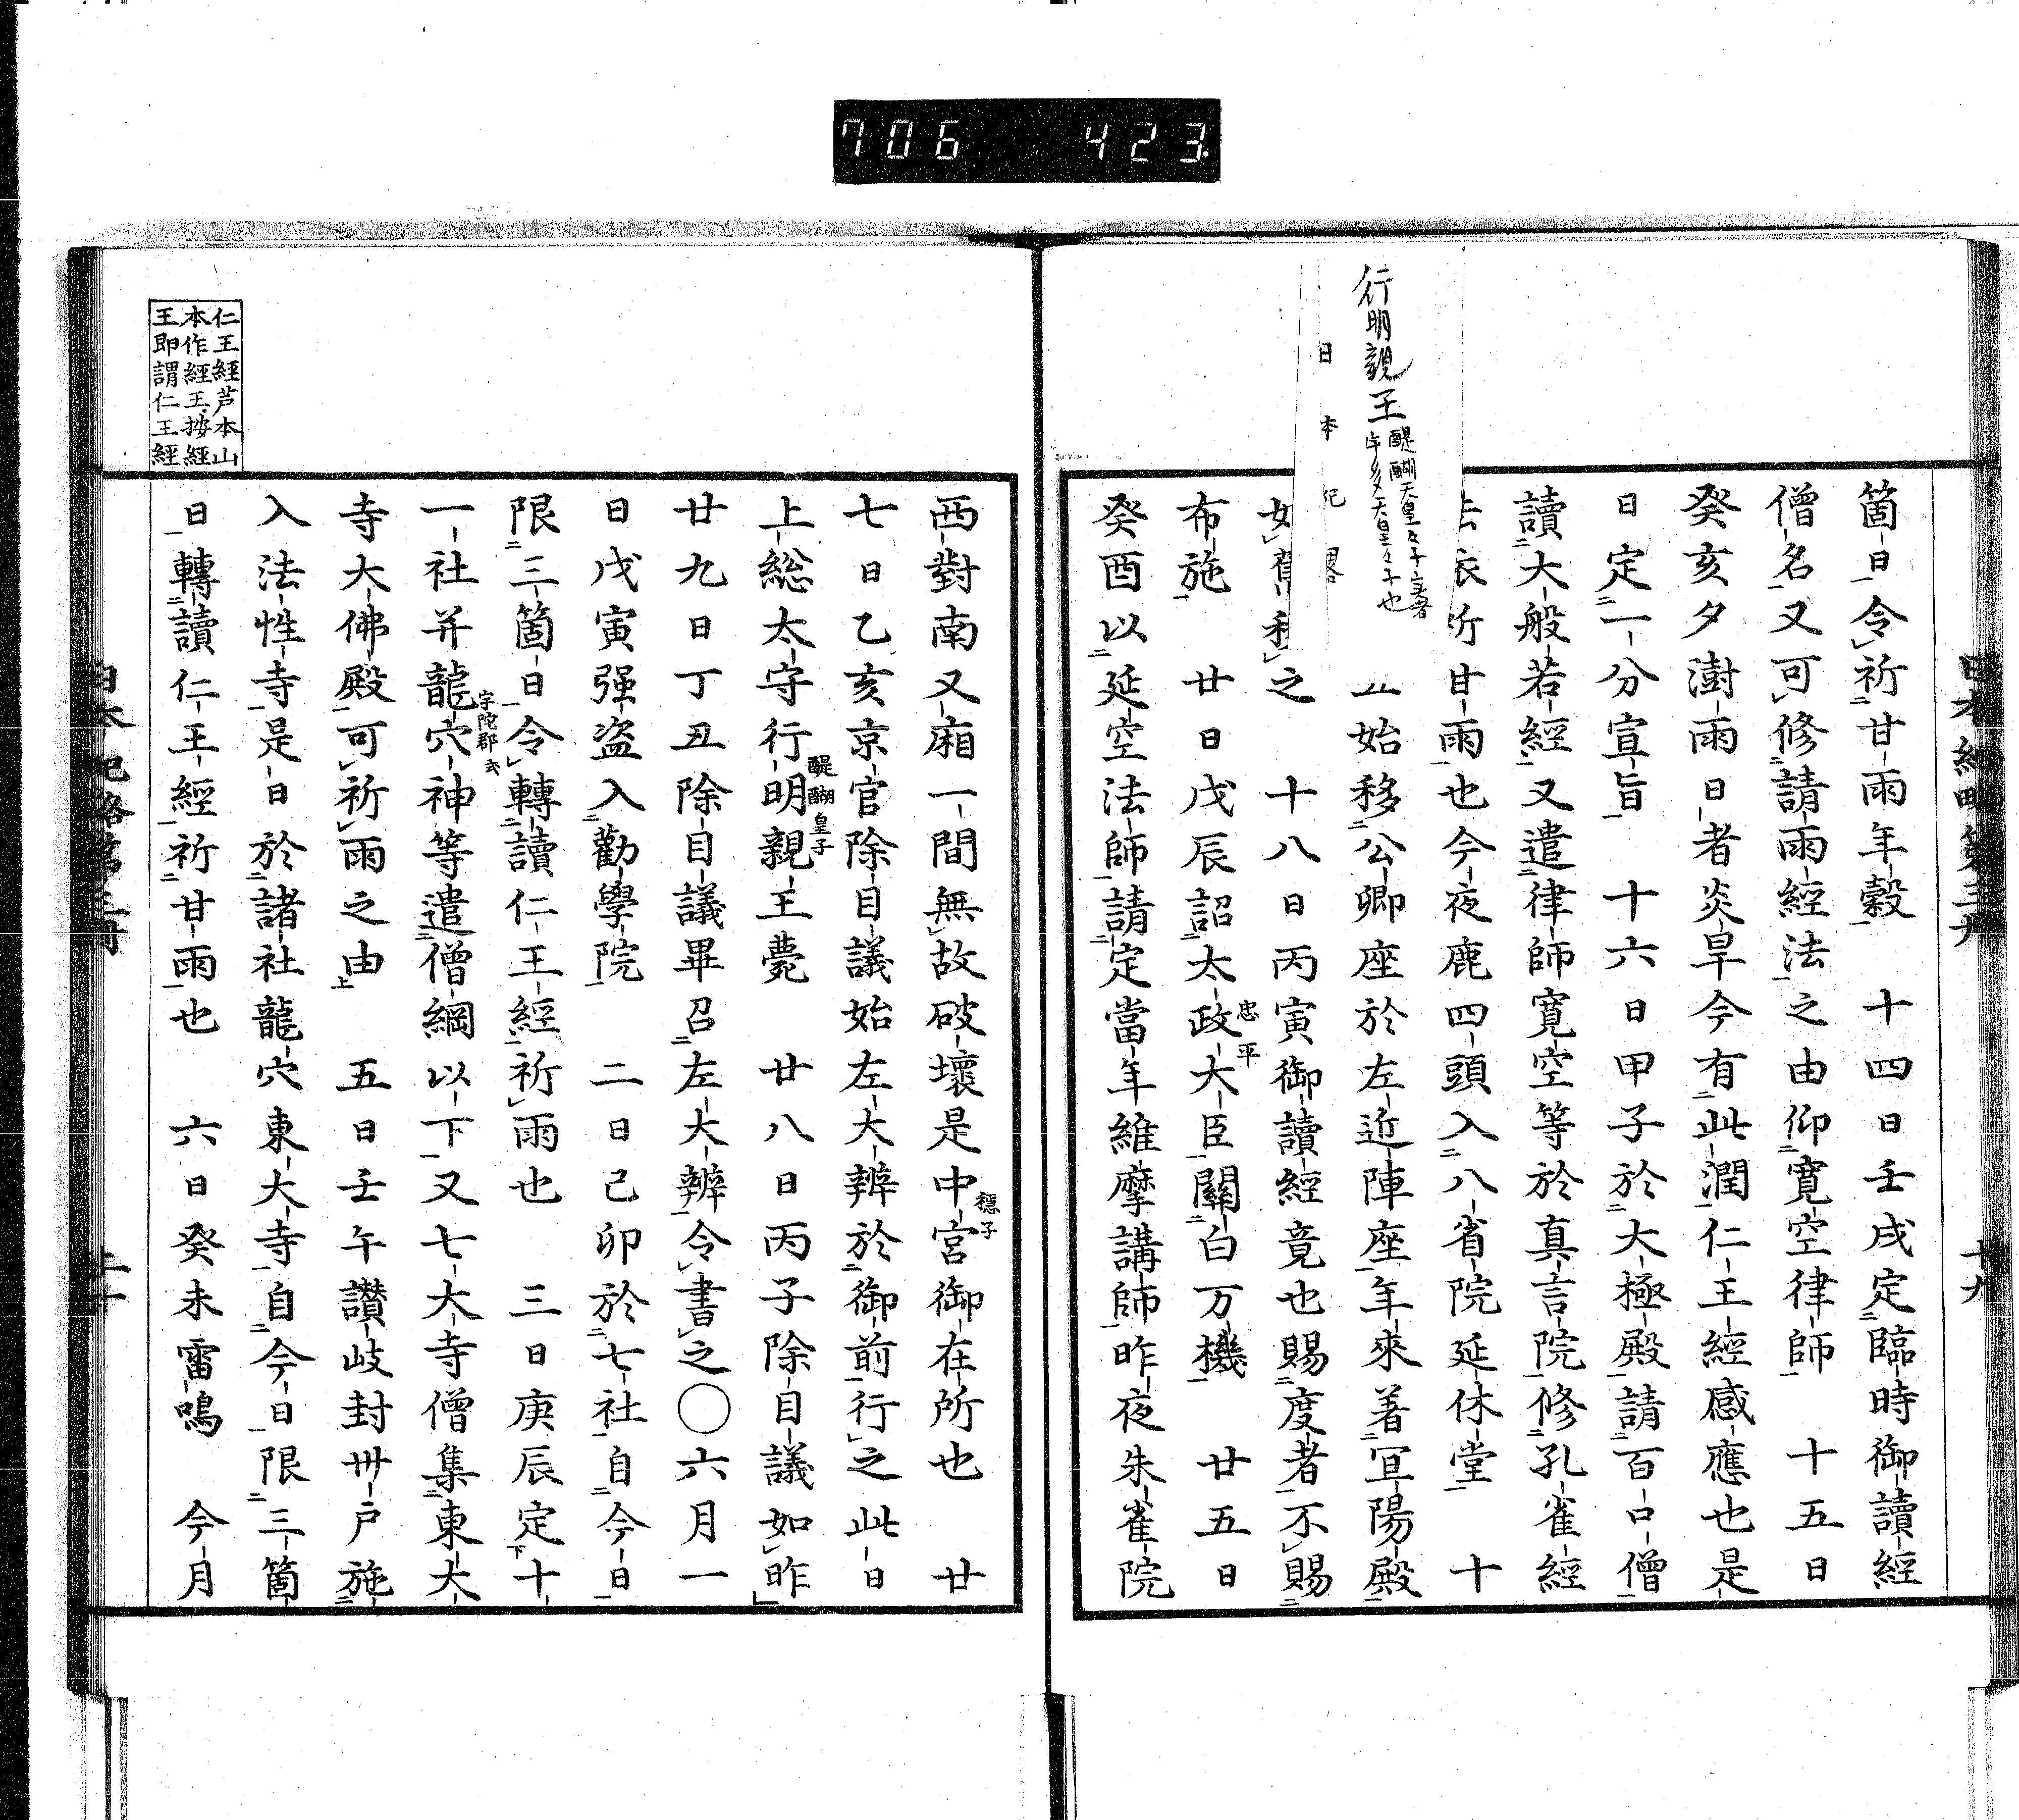 706 423
行明親王 醍醐天皇々子実者
宇多天皇々子也
日本紀略
箇日令祈甘雨年穀　十四日壬戌定臨時御讀經
僧名又可修請雨經法之由仰寛空律師　十五日
癸亥夕澍雨日者炎旱今有此潤仁王經感應也是
日定一分宣旨　十六日甲子於大極殿請百口僧
讀大般若經又遣律師寛空等於真言院修孔雀經
法依祈甘雨也今夜鹿四頭入八省院延休堂　十
始移公卿座於左近陣座年來著宜陽殿
如舊移之　十八日丙寅御讀經竟也賜度者不賜
布施　廿日戊辰詔太政大臣關白万機　廿五日
忠平
癸酉以延空法師請定當年維摩講師昨夜朱雀院
西對南又廂一間無故破壞是中宮御在所也　廿
穩子
七日乙亥京官除目議始左大辨於御前行之此日
上総太守行明親王薨　廿八日丙子除目議如昨
醍醐皇子
廿九日丁丑除目議畢召左大辨令書之○六月一
日戊寅强盗入勸學院　二日己卯於七社自今日
限三箇日令轉讀仁王經祈雨也　三日庚辰定十
一社并龍穴神等遣僧綱以下又七大寺僧集東大
宇陀郡
寺大佛殿可祈雨之由　五日壬午讃岐封卅戸施
入法性寺是日於諸社龍穴東大寺自今日限三箇
日轉讀仁王經祈甘雨也　六日癸未雷鳴　今月
仁王經芦本山
本作經王按經
王即謂仁王經